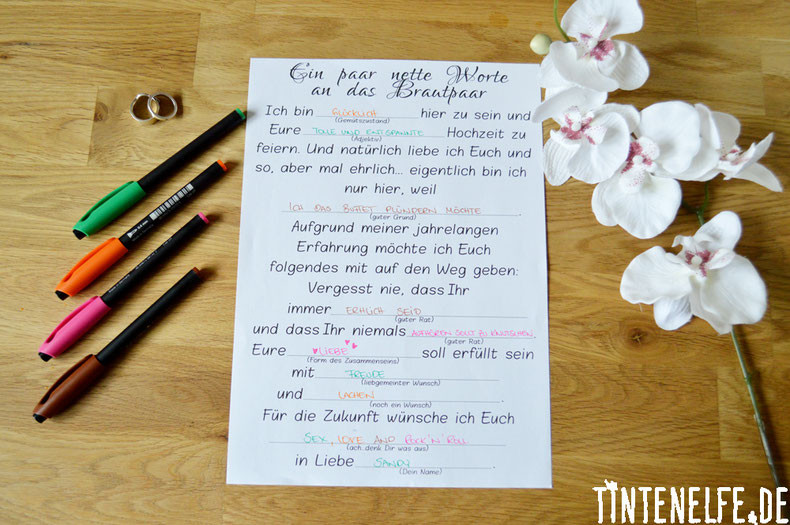 Ein paar nette Worte
an das Brautpaar
Ich bin GLÜCKLICH hier zu sein und
(Gemütszustand)
Eure TOLLE UND ENTSPANNTE Hochzeit zu
(Adjektiv)
feiern. Und natürlich liebe ich Euch und
so, aber mal ehrlich... eigentlich bin ich
nur hier, weil
ICH DAS BUFFET PLÜNDERN MÖCHTE.
(guter Grund)
Aufgrund meiner jahrelangen
Erfahrung möchte ich Euch
folgendes mit auf den Weg geben:
Vergesst nie, dass Ihr
immer EHRLICH SEID
(guter Rat)
und dass Ihr niemals AUFHÖREN SOLLT ZU KNUTSCHEN.
(guter Rat)
Eure LIEBE soll erfüllt sein
(Form des Zusammenseins)
mit FREUDE
(liebgemeinter Wunsch)
und LACHEN.
(noch ein Wunsch)
Für die Zukunft wünsche ich Euch
SEX, LOVE AND ROCK'N'ROLL
(ach denk Dir was aus)
in Liebe SANDY.
(Dein Name)
TINTENELFE.DE